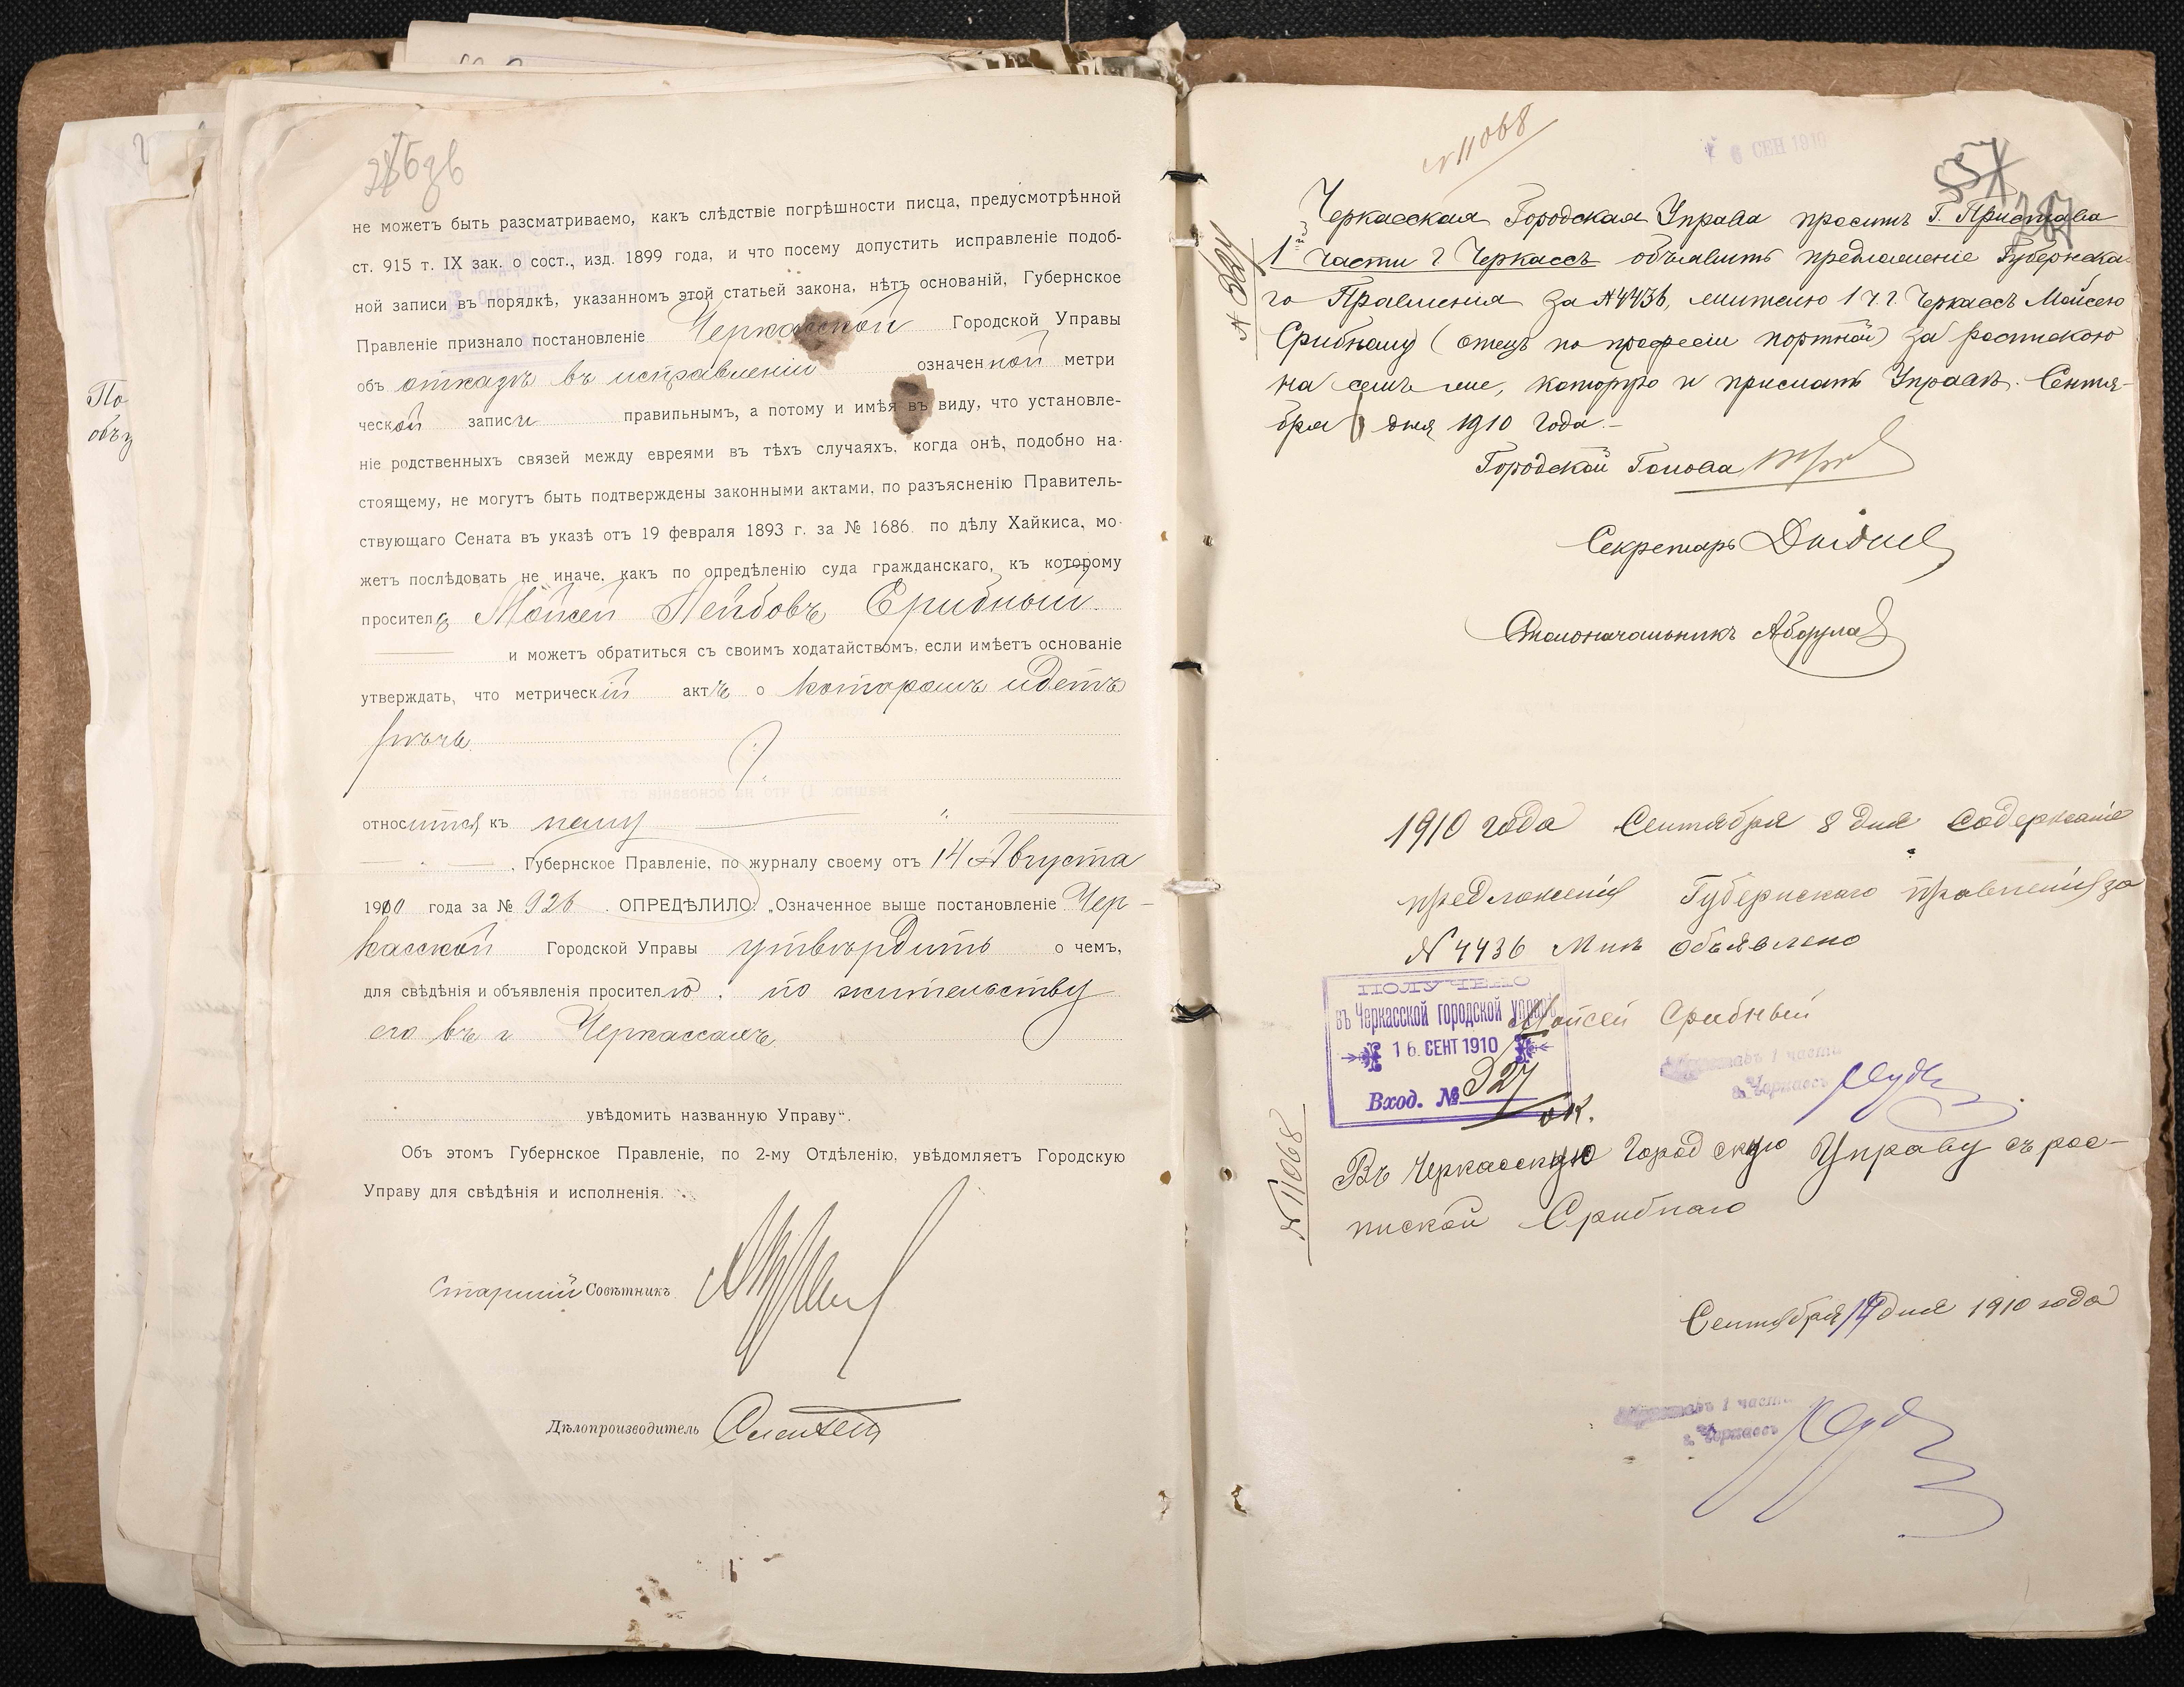 По
объ
не можетъ быть разсматриваемо, какъ слѣдствіе погрѣшности писца, предусмотрѣнной
ст. 915 т. IX зак. о сост., изд. 1899 года, и что посему допустить исправленіе подоб-
ной записи въ порядкѣ, указанномъ этой статьей закона, нѣтъ основаній, Губернское
Правленіе признало постановленіе Черкасской Городской Управы
объ отказѣ въ исправленіи означенной метри
ческой записи правильнымъ, а потому и имѣя въ виду, что установле-
ніе родственныхъ связей между евреями въ тѣхъ случаяхъ, когда онѣ, подобно на-
стоящему, не могутъ быть подтверждены законными актами, по разъясненію Правитель-
ствующаго Сената въ указѣ отъ 19 февраля 1893 г. за № 1686 по дѣлу Хайкиса, мо-
жетъ послѣдовать не иначе, какъ по опредѣленію суда гражданскаго, къ которому
просител Мойсей Лейбовъ Срибный
и можетъ обратиться съ своимъ ходатайствомъ, если имѣетъ основаніе
утверждать, что метрическій актъ о которомъ идетъ
рѣчь
относится къ нему
Губернское Правленіе, по журналу своему отъ 14 Августа
1910 года за № 926. ОПРЕДѢЛИЛО: „Означенное выше постановленіе Чер-
касской Городской Управы утвердить о чемъ,
для свѣдѣнія и объявленія просителю, по жительству
его въ г Черкассахъ,
увѣдомить названную Управу“.
Объ этомъ Губернское Правленіе, по 2-му Отдѣленію, увѣдомляетъ Городскую
Управу для свѣдѣнія и исполненія.
Старшій Совѣтникъ
Дѣлопроизводитель
№ 11068
6 СЕН 1910
557
267
Черкасская Городская Управа проситъ Г. Пристава
1й части г Черкассъ объявить предложеніе Губернска-
го Правленія за № 4436, жителю 1 ч. г. Черкассъ Мойсею
Срибному (отецъ по професіи портной) за роспискою
на семъ же, которую и прислать Управѣ. Сентя-
бря дня 1910 года.
Городской Голова
Секретарь
Столоначальникъ
1910 года Сентября 8 дня содержаніе
предложенія Губернскаго правленія за
№ 4436 Мнѣ объявлено
Мойсей Срибный
ПОЛУЧЕНО
въ Черкасской городской управѣ
16. СЕНТ 1910
Вход. № 927
Приставъ 1 части
г. Черкассъ
№ 11068
Въ Черкасскую Городскую Управу съ рос-
пиской Срибнаго
Сентября 14 дня 1910 года
Приставъ 1 части
г. Черкассъ